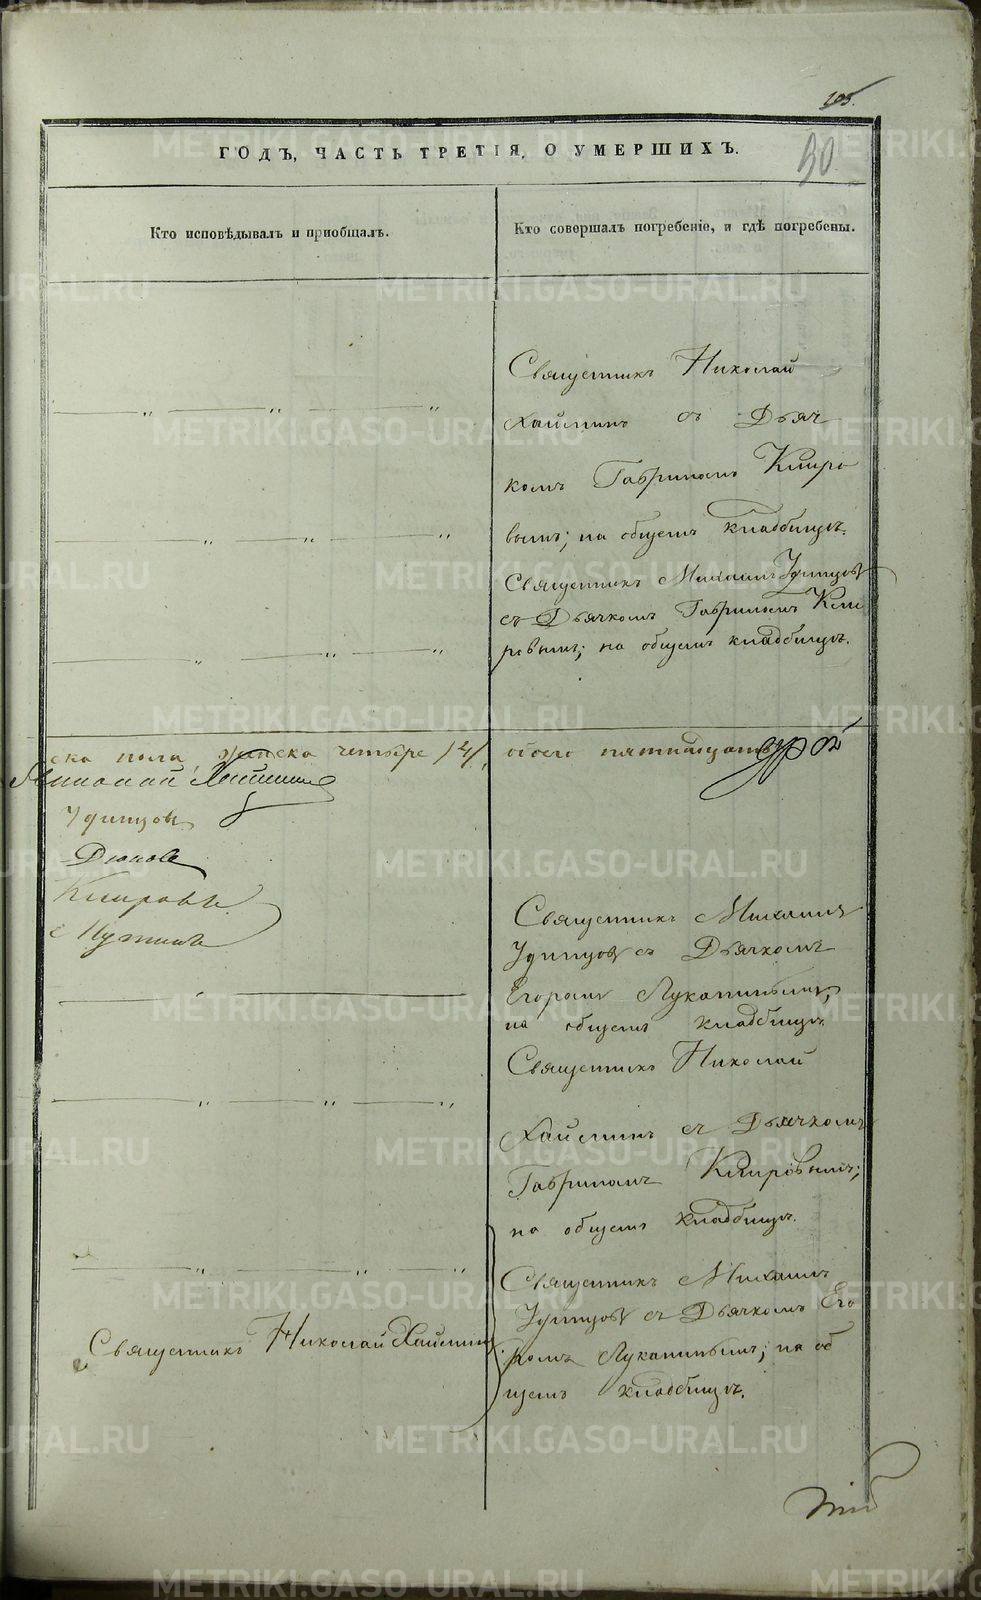 105.
ГОДЪ, ЧАСТЬ ТРЕТІЯ, О УМЕРШИХЪ.
30
Кто исповѣдывалъ и пріобщалъ.
Кто совершалъ погребеніе, и гдѣ погребены.
Священникъ Николай
Хайминъ съ Дьяч
комъ Гавриломъ Кпиро
вымъ; на общемъ кладбищѣ.
Священникъ Михаилъ Удинцовъ
съ Дьячкомъ Гавриломъ Кпи
ровымъ; на общемъ кладбищѣ.
ска пола, женска четыре /4/, обоего пятнадцать
Николай Хайминъ
Удинцовъ
Кпировъ
Священникъ Михаилъ
Удинцовъ съ Дьячкомъ
Егоромъ Лукапинымъ,
на общемъ кладбищѣ.
Священникъ Николай
Хайминъ съ Дьячкомъ
Гавриломъ Кпировымъ;
на общемъ кладбищѣ.
Священникъ Николай Хайминъ
Священникъ Михаилъ
Удинцовъ съ Дьячкомъ Его
ромъ Лукапинымъ; на об
щемъ кладбищѣ.
METRIKI.GASO-URAL.RU